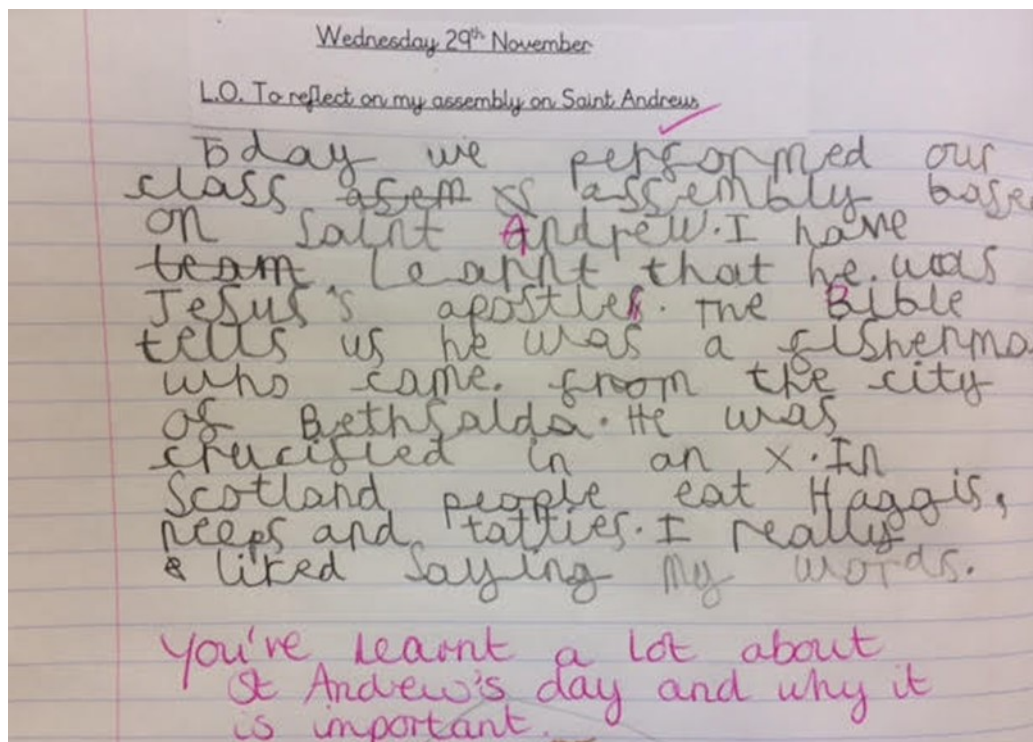 Wednesday 29th November
L.O. To reflect on my assembly on Saint Andrews
Today we performed our
class asem assembly base
on Saint Andrew. I have
team. Learnt that he. was
Jesus's apostle. The Bible
tells us he was a fisherma
who came. from the city
of Bethsalda. He was
crucified in an X. In
Scotland people eat Haggis,
neeps and tatties. I really
liked saying my words.
You've learnt a lot about
St Andrew's day and why it
is important.